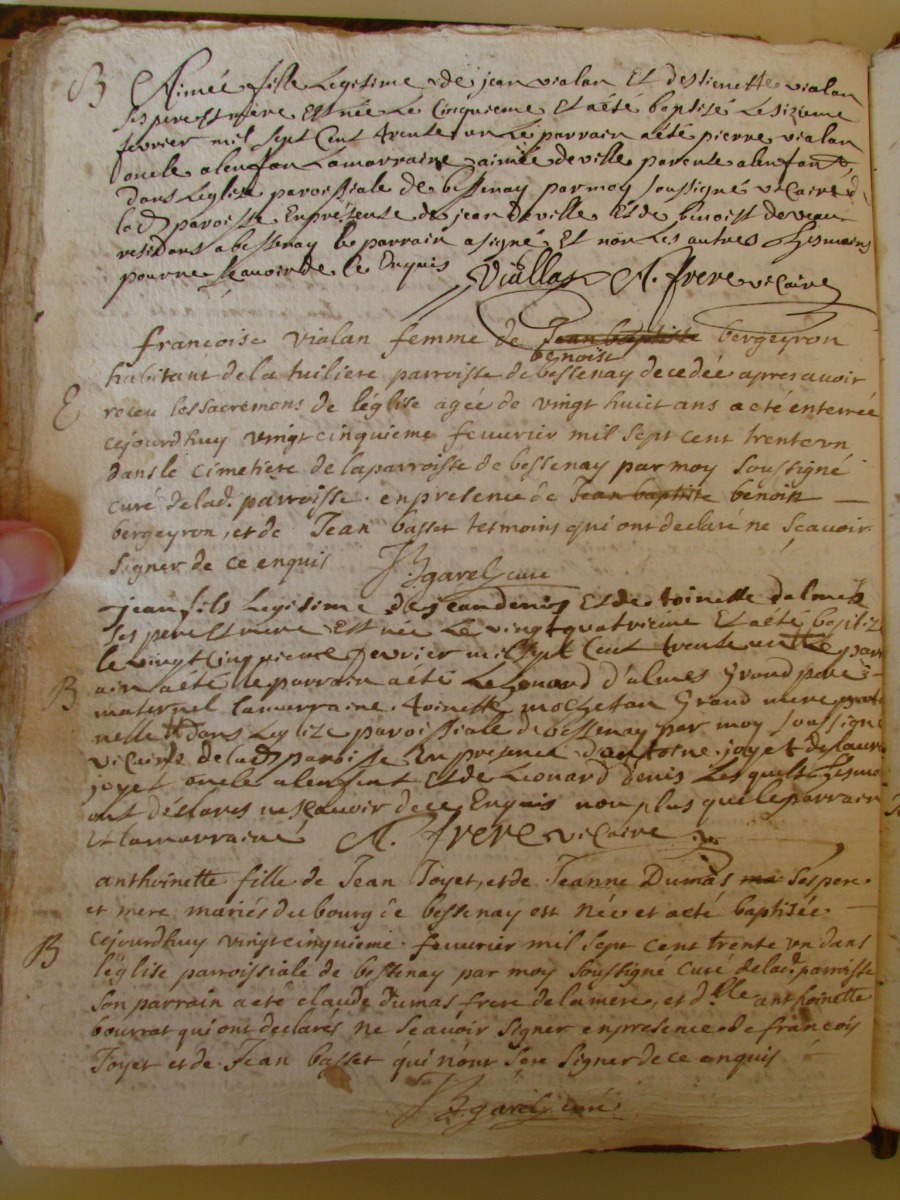 B Aimée fille Legitime de jean vialan Et destienette vialan
ses pere Et mere Est née Le Cinquieme Et a été baptisé Le sizieme
fevrier mil sept Cent trente un Le parrain a été pierre vialan
oncle a lenfan La marraine aimée deville parente a lenfant
dans Leglize paroissiale de bessenay par moy soussigné vicaire d
lad paroisse En présence de jean deville Et de benoist deveau
residans a bessenay le parrain a signé Et non Les autres
pour ne sçavoir de ce Enquis Viallas A. frere vicaire
francoise vialan femme de Jean baptiste bergeyron
benoist
habitant de la tuiliere parroisse de bessenay decedée apres avoir
E receu les sacremens de l'église agée de vingt huit ans a eté enterrée
cejourdhuy vingtcinquieme feuvrier mil sept cent trente vn
dans le cimetiere de la parroisse de bessenay par moy soussigné
curé de lad. parroisse. en presence de Jean baptiste benoist
bergeyron, et de Jean basset tesmoins qui ont declaré ne sçavoir
signer de ce enquis JBgarel curé
jean fils Legitime de jean denis Et de toinette dalmes
ses pere Et mere Est née Le vingt quatrieme Et a été baptizé
le vingt cinquieme fevrier mil sept Cent trente un Le parr
ain a été le parrain a été Leonard d'almes Grand pere
B maternel La marraine toinette mochetan Grand mere
nelle dans Leglize paroissiale de bessenay par moy soussigne
vicaire de lad paroisse En presence dantoine joyet
joyet oncle a lenfant Et de Leonard denis Lesquels tesmo
ont déclarés ne sçavoir de ce Enquis non plus que le parrain
Et la marraine A. frere vicaire
anthoinette fille de Jean Joyet, et de Jeanne Dumas ma ses pere
et mere mariés du bourg de bessenay est Née et a eté baptisée
B cejourdhuy vingtcinquieme feuvrier mil sept cent trente vn dans
l'église parroissiale de bessenay par moy soussigné curé de lad. parroisse
son parrain a eté claude dumas frere de la mere, et d.lle anthoinette
bourrat qui ont declarés ne sçavoir signer en presence de francois
Joyet et de Jean basset qui n'ont sçeu signer de ce enquis
JBgarel curé